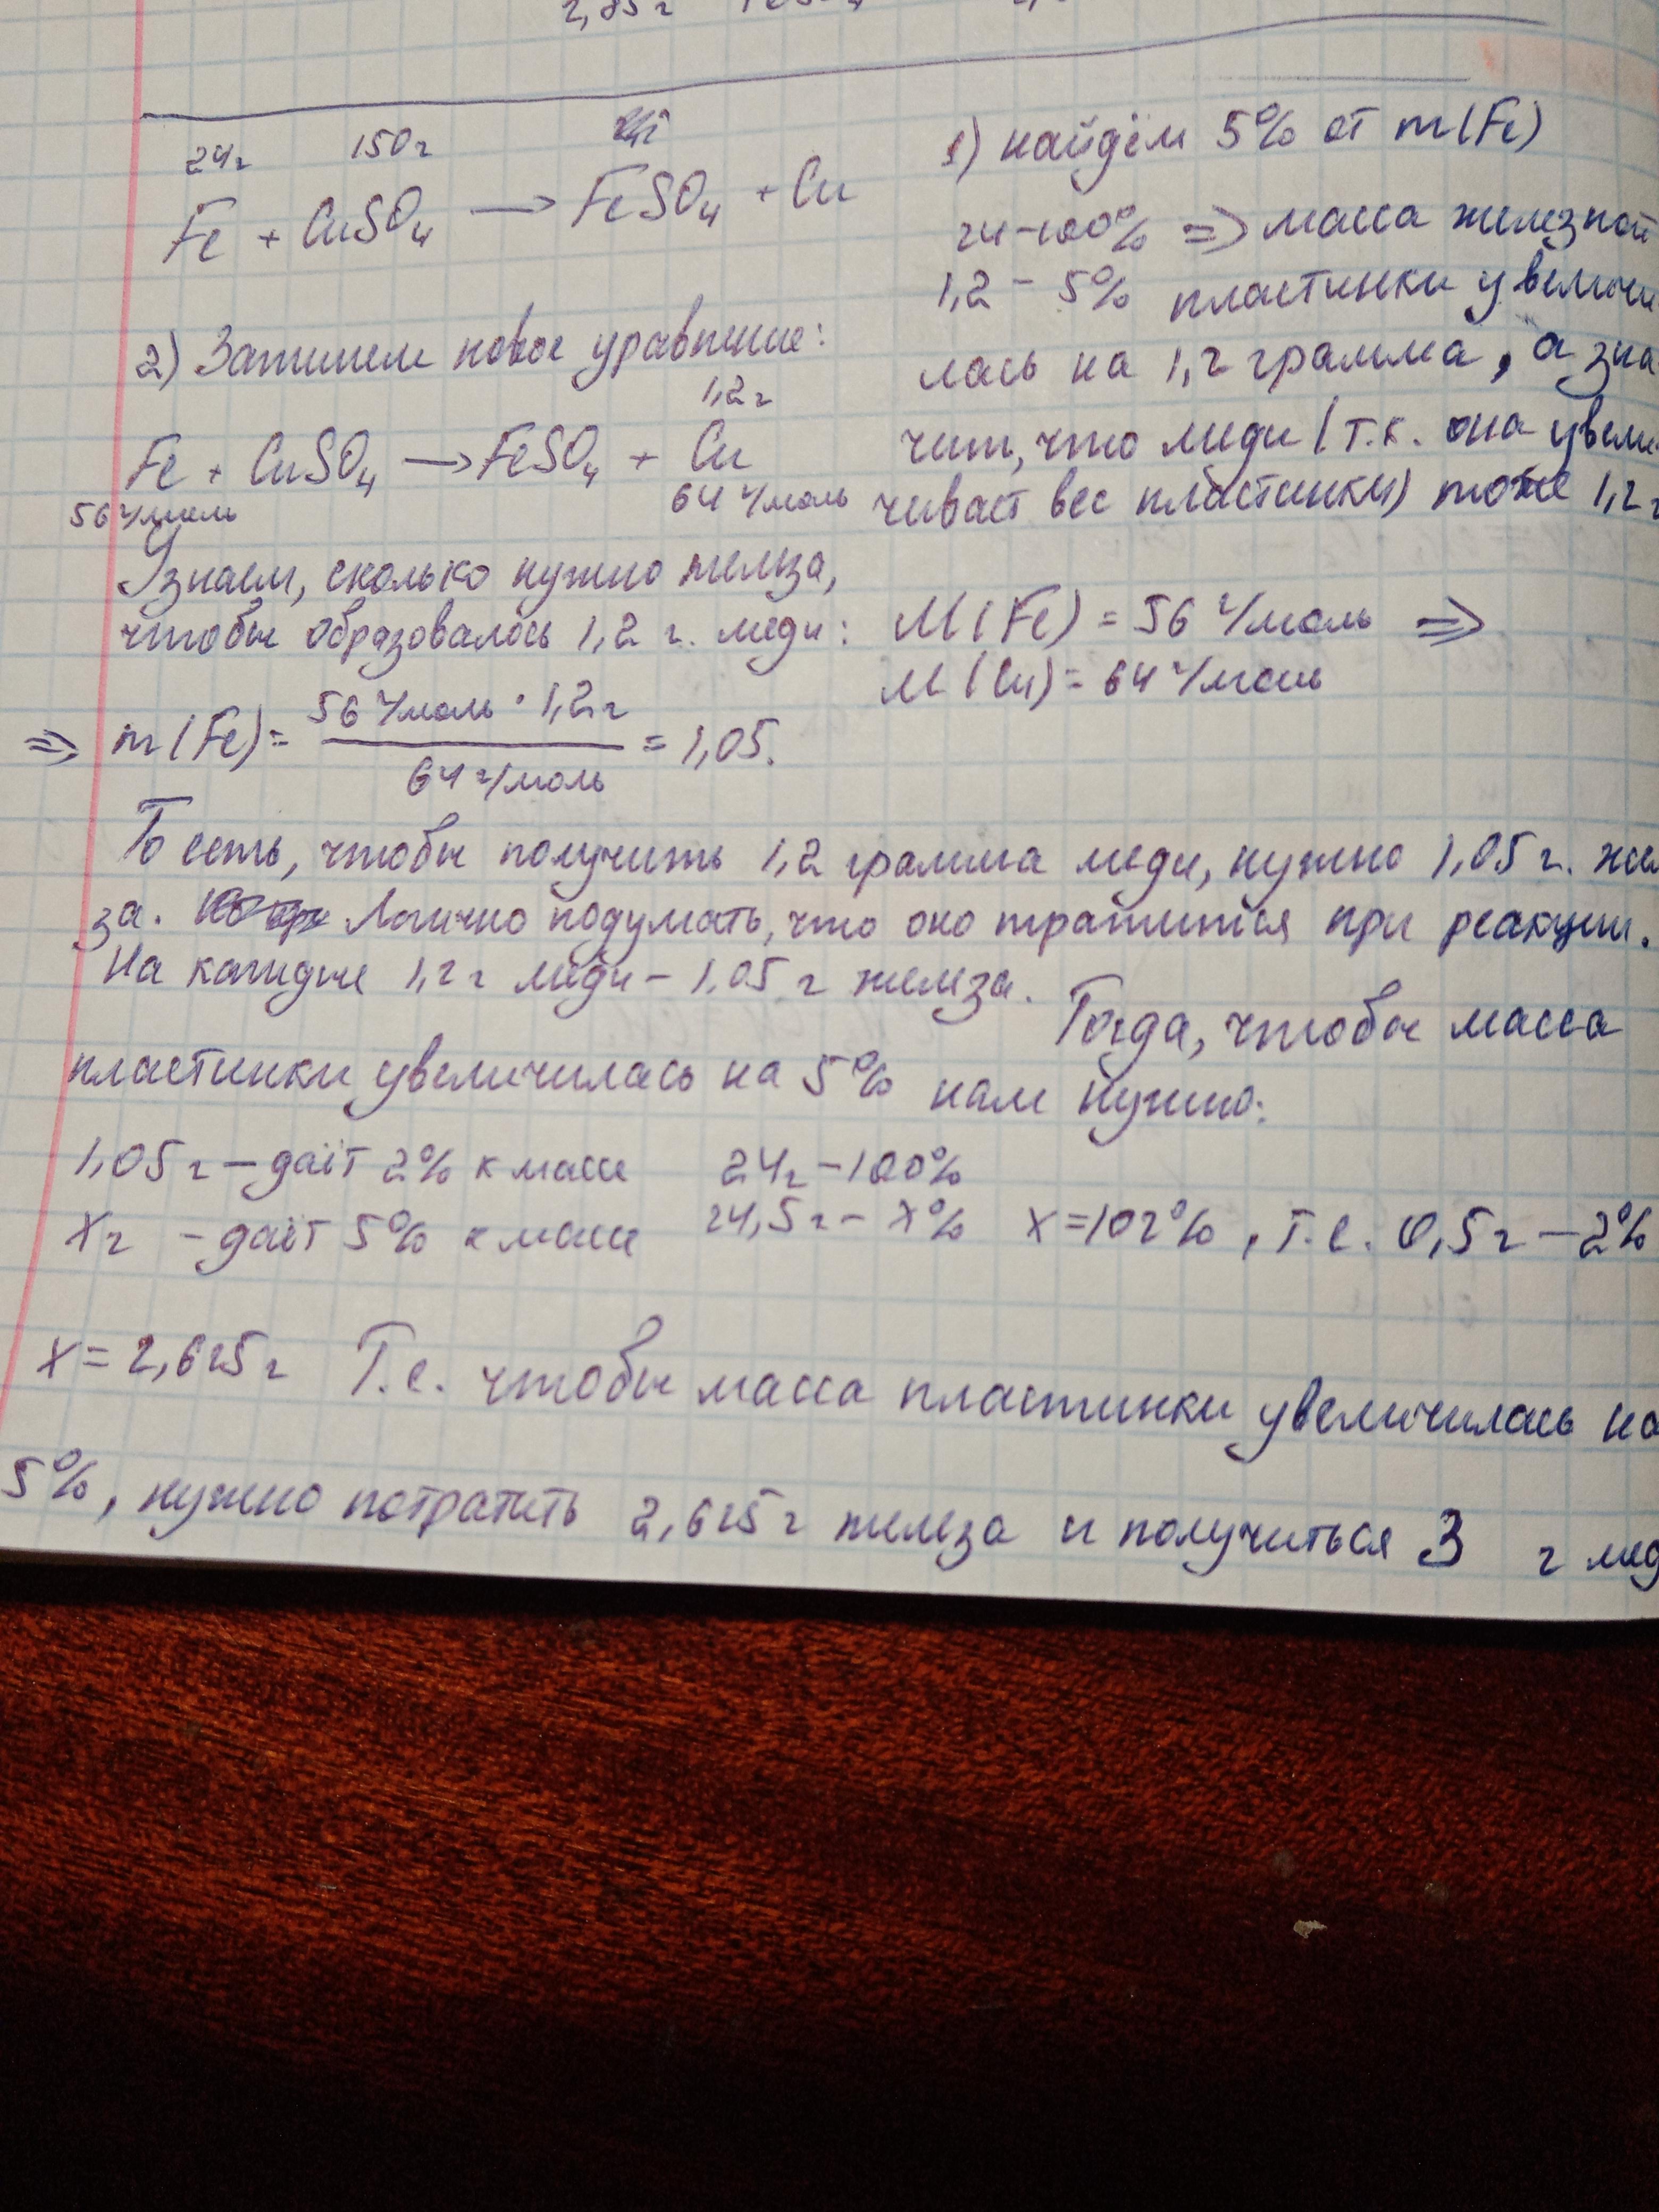 2,85 г
24г 150г
Fe + CuSO₄ → FeSO₄ + Cu
1) найдём 5% от m(Fe)
24-100% => масса железной
1,2 - 5% пластинки увеличи
лась на 1,2 грамма, а зна
чит, что меди (т.к. она увели
чивает вес пластинки) тоже 1,2 г
2) Запишем новое уравнение:
1,2г
Fe + CuSO₄ → FeSO₄ + Cu
56 г/моль 64 г/моль
Узнаем, сколько нужно железа,
чтобы образовалось 1,2 г. меди:
M(Fe) = 56 г/моль =>
M(Cu) = 64 г/моль
=> m(Fe) = 56 г/моль · 1,2г / 64 г/моль = 1,05.
То есть, чтобы получить 1,2 грамма меди, нужно 1,05 г. жел
за. Логично подумать, что оно тратится при реакции.
На каждые 1,2 г меди - 1,05 г железа. Тогда, чтобы масса
пластинки увеличилась на 5% нам нужно:
1,05 г - даёт 2% к массе 24г - 100%
Xг - даёт 5% к массе 24,5г - X% X=102%, т.е. 0,5г - 2%
X = 2,625г Т.е. чтобы масса пластинки увеличилась на
5%, нужно потратить 2,625г железа и получиться 3 г мед